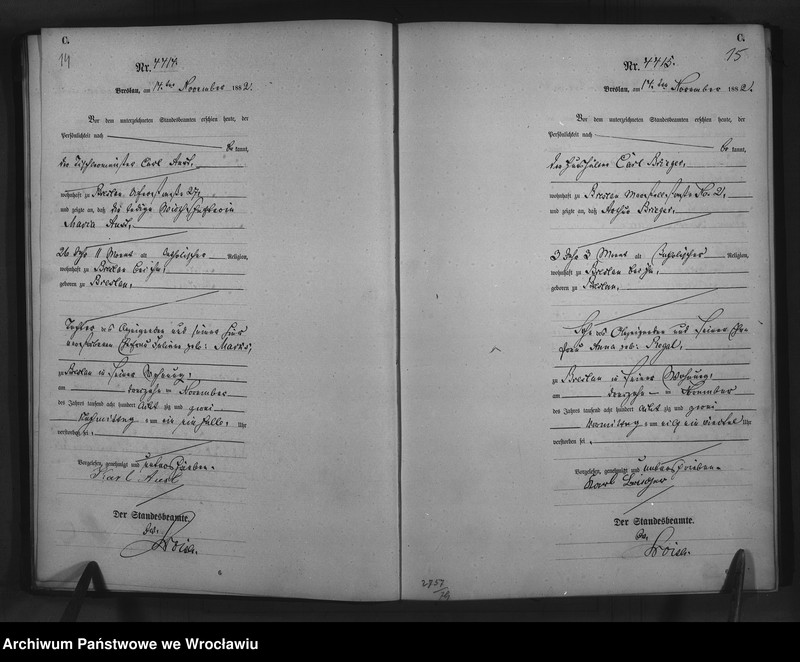 C.
14
Nr. 4414.
Breslau, am 14ten November 1882.
Vor dem unterzeichneten Standesbeamten erschien heute, der
Persönlichkeit nach
be kannt,
der Tischlermeister Carl
wohnhaft zu Breslau
und zeigte an, daß die ledige Wirthschafterin
Maria
26 Jahr 11 Monat katholischer Religion,
wohnhaft zu Breslau bei ihm,
geboren zu Breslau,
Tochter des Anzeigenden und seiner hier
verstorbenen Ehefrau Juliane geb: Marks,
zu Breslau in seiner Wohnung,
am dreizehn November
des Jahres tausend acht hundert acht zig und zwei
Nachmittag um ein ein halb Uhr
verstorben sei.
Vorgelesen, genehmigt und unterschrieben.
Karl
Der Standesbeamte.
C.
15
Nr. 4415.
Breslau, am 14ten November 1882.
Vor dem unterzeichneten Standesbeamten erschien heute, der
Persönlichkeit nach
be kannt,
der Haushälter Carl Brieger,
wohnhaft zu Breslau No. 21,
und zeigte an, daß Arthur Brieger,
3 Jahr 3 Monat alt katholischer Religion,
wohnhaft zu Breslau bei ihm,
geboren zu Breslau,
Sohn des Anzeigenden und seiner Ehe
frau Anna geb: Rogal,
zu Breslau in seiner Wohnung,
am dreizehn November
des Jahres tausend acht hundert acht zig und zwei
Vormittag um elf ein viertel Uhr
verstorben sei.
Vorgelesen, genehmigt und unterschrieben.
Karl Brieger
Der Standesbeamte.
2757
Archiwum Państwowe we Wrocławiu